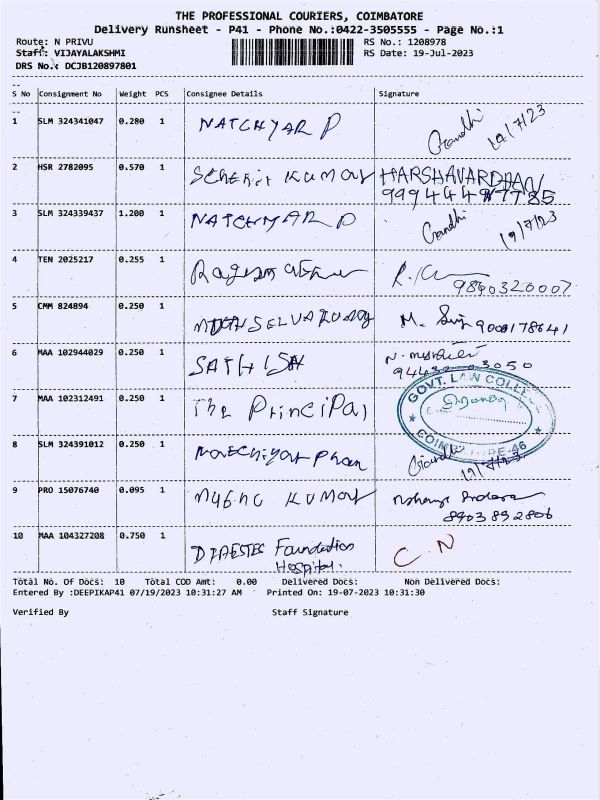 THE PROFESSIONAL COURIERS, COIMBATORE
Delivery Runsheet - P41 - Phone No.:0422-3505555 - Page No.:1
Route: N PRIVU RS No.: 1208978
Staff: VIJAYALAKSHMI RS Date: 19-Jul-2023
DRS No.: DCJB120897801
S No Consignment No Weight PCS Consignee Details Signature
1 SLM 324341047 0.280 1 NATCHYAR P Gandhi 19/7/23
2 HSR 2782095 0.570 1 Kumar HARSHAVARDHAN
3 SLM 324339437 1.200 1 NATCHYAR P Gandhi 19/7/23
4 TEN 2025217 0.255 1
9890320007
5 CMM 824894 0.250 1 M. 9008178641
6 MAA 102944029 0.250 1 SATHISH N.
7 MAA 102312491 0.250 1 The Principal
GOVT. LAW COLLEGE
8 SLM 324391012 0.250 1 Gandhi
9 PRO 15076740 0.095 1 KUMAR
8903892806
10 MAA 104327208 0.750 1 Foundation C.N
Hospital.
Total No. Of Docs: 10 Total COD Amt: 0.00 Delivered Docs: Non Delivered Docs:
Entered By :DEEPIKAP41 07/19/2023 10:31:27 AM Printed On: 19-07-2023 10:31:30
Verified By Staff Signature